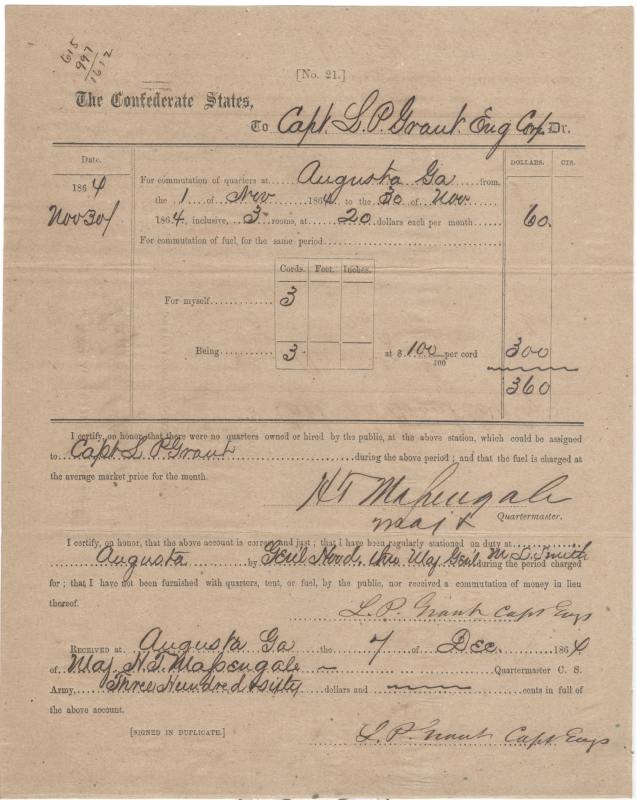 615
997
1612
[No. 21.]
The Confederate States,
To Capt. L. P. Grant. Eng Corp. Dr.
Date. DOLLARS. CTS.
1864 For commutation of quarters at Augusta Ga from,
Nov 30/ the 1 of Nov 1864 to the 30 of Nov
1864, inclusive, 3 rooms, at 20 dollars each per month 60.
For commutation of fuel, for the same period
Cords. Feet. Inches.
For myself 3
Being 3 at $ 100/100 per cord 300
360
I certify, on honor, that there were no quarters owned or hired by the public, at the above station, which could be assigned
to Capt L P Grant during the above period; and that the fuel is charged at
the average market price for the month.
H T Massengale
Maj & Quartermaster.
I certify, on honor, that the above account is correct and just; that I have been regularly stationed on duty at
Augusta by Genl Hood, thro Maj Genl M. L. Smith during the period charged
for; that I have not been furnished with quarters, tent, or fuel, by the public, nor received a commutation of money in lieu
thereof.
L. P. Grant Capt Engs
RECEIVED at Augusta Ga the 7 of Dec 1864
of Maj. H. T. Massengale Quartermaster C. S.
Army, Three Hundred & sixty dollars and cents in full of
the above account.
[SIGNED IN DUPLICATE.]
L. P. Grant Capt Engs